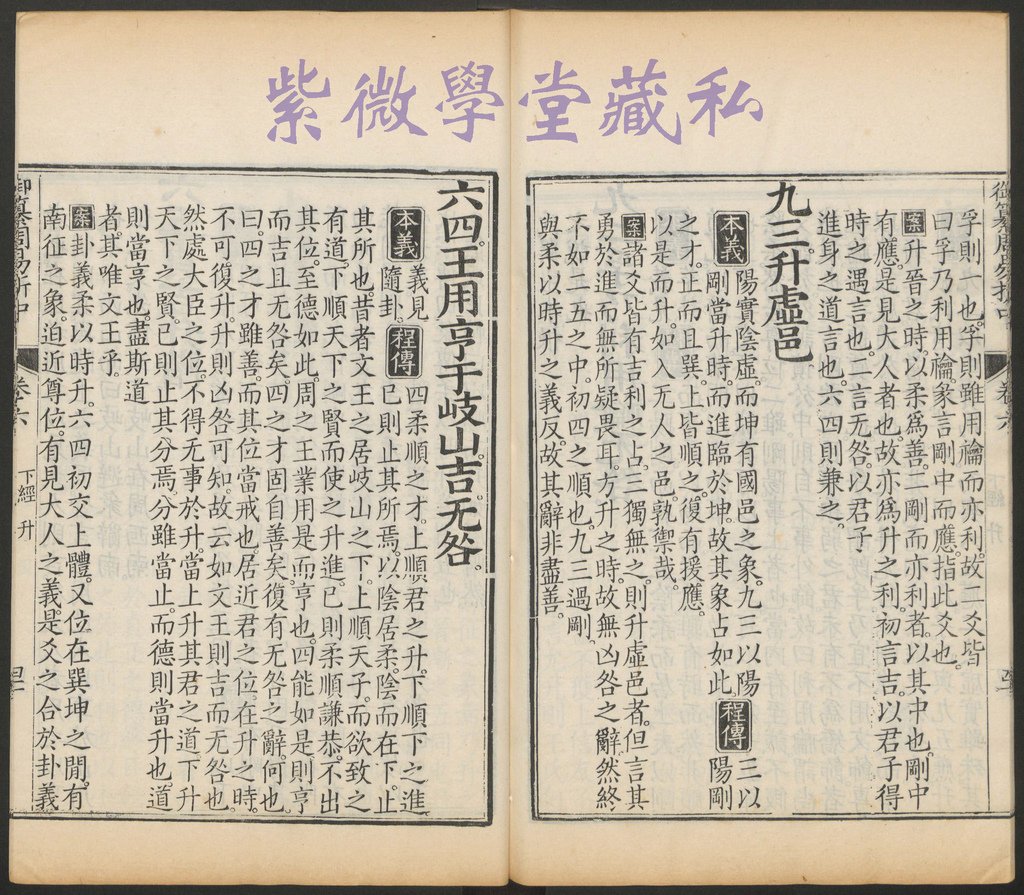 紫微學堂藏私
御纂周易折中
卷六
孚則一也孚則雖用禴而亦利故二爻皆
曰孚乃利用禴彖言剛中而應指此爻也
案升晉之時以柔爲善二剛而亦利者以其中也剛中
有應是見大人者也故亦爲升之利初言吉以君子得
時之遇言也二言无咎以君子
進身之道言也六四則兼之
九三升虛邑
本義陽實陰虛而坤有國邑之象九三以陽
剛當升時而進臨於坤故其象占如此程傳三以
陽剛
之才正而且巽上皆順之復有援應
以是而升如入无人之邑孰禦哉
案諸爻皆有吉利之占三獨無之則升虛邑者但言其
勇於進而無所疑畏耳方升之時故無凶咎之辭然終
不如二五之中初四之順也九三過剛
與柔以時升之義反故其辭非盡善
六四王用亨于岐山吉无咎
本義義見
隨卦程傳四柔順之才上順君之升下順下之進
已則止其所焉以陰居柔陰而在下止
其所也昔者文王之居岐山之下上順天子而欲致之
有道下順天下之賢而使之升進已則柔順謙恭不出
其位至德如此周之王業用是而亨也四能如是則亨
而吉且无咎矣四之才固自善矣復有无咎之辭何也
曰四之才雖善而其位當戒也居近君之位在升之時
不可復升升則凶咎可知故云如文王則吉而无咎也
然處大臣之位不得无事於升當上升其君之道下升
天下之賢已則止其分焉分雖當止而德則當升也道
則當亨也盡斯道
者其唯文王乎
案卦義柔以時升六四初交上體又位在巽坤之閒有
南征之象迫近尊位有見大人之義是爻之合於卦義
御纂周易折中
卷六
下經 升